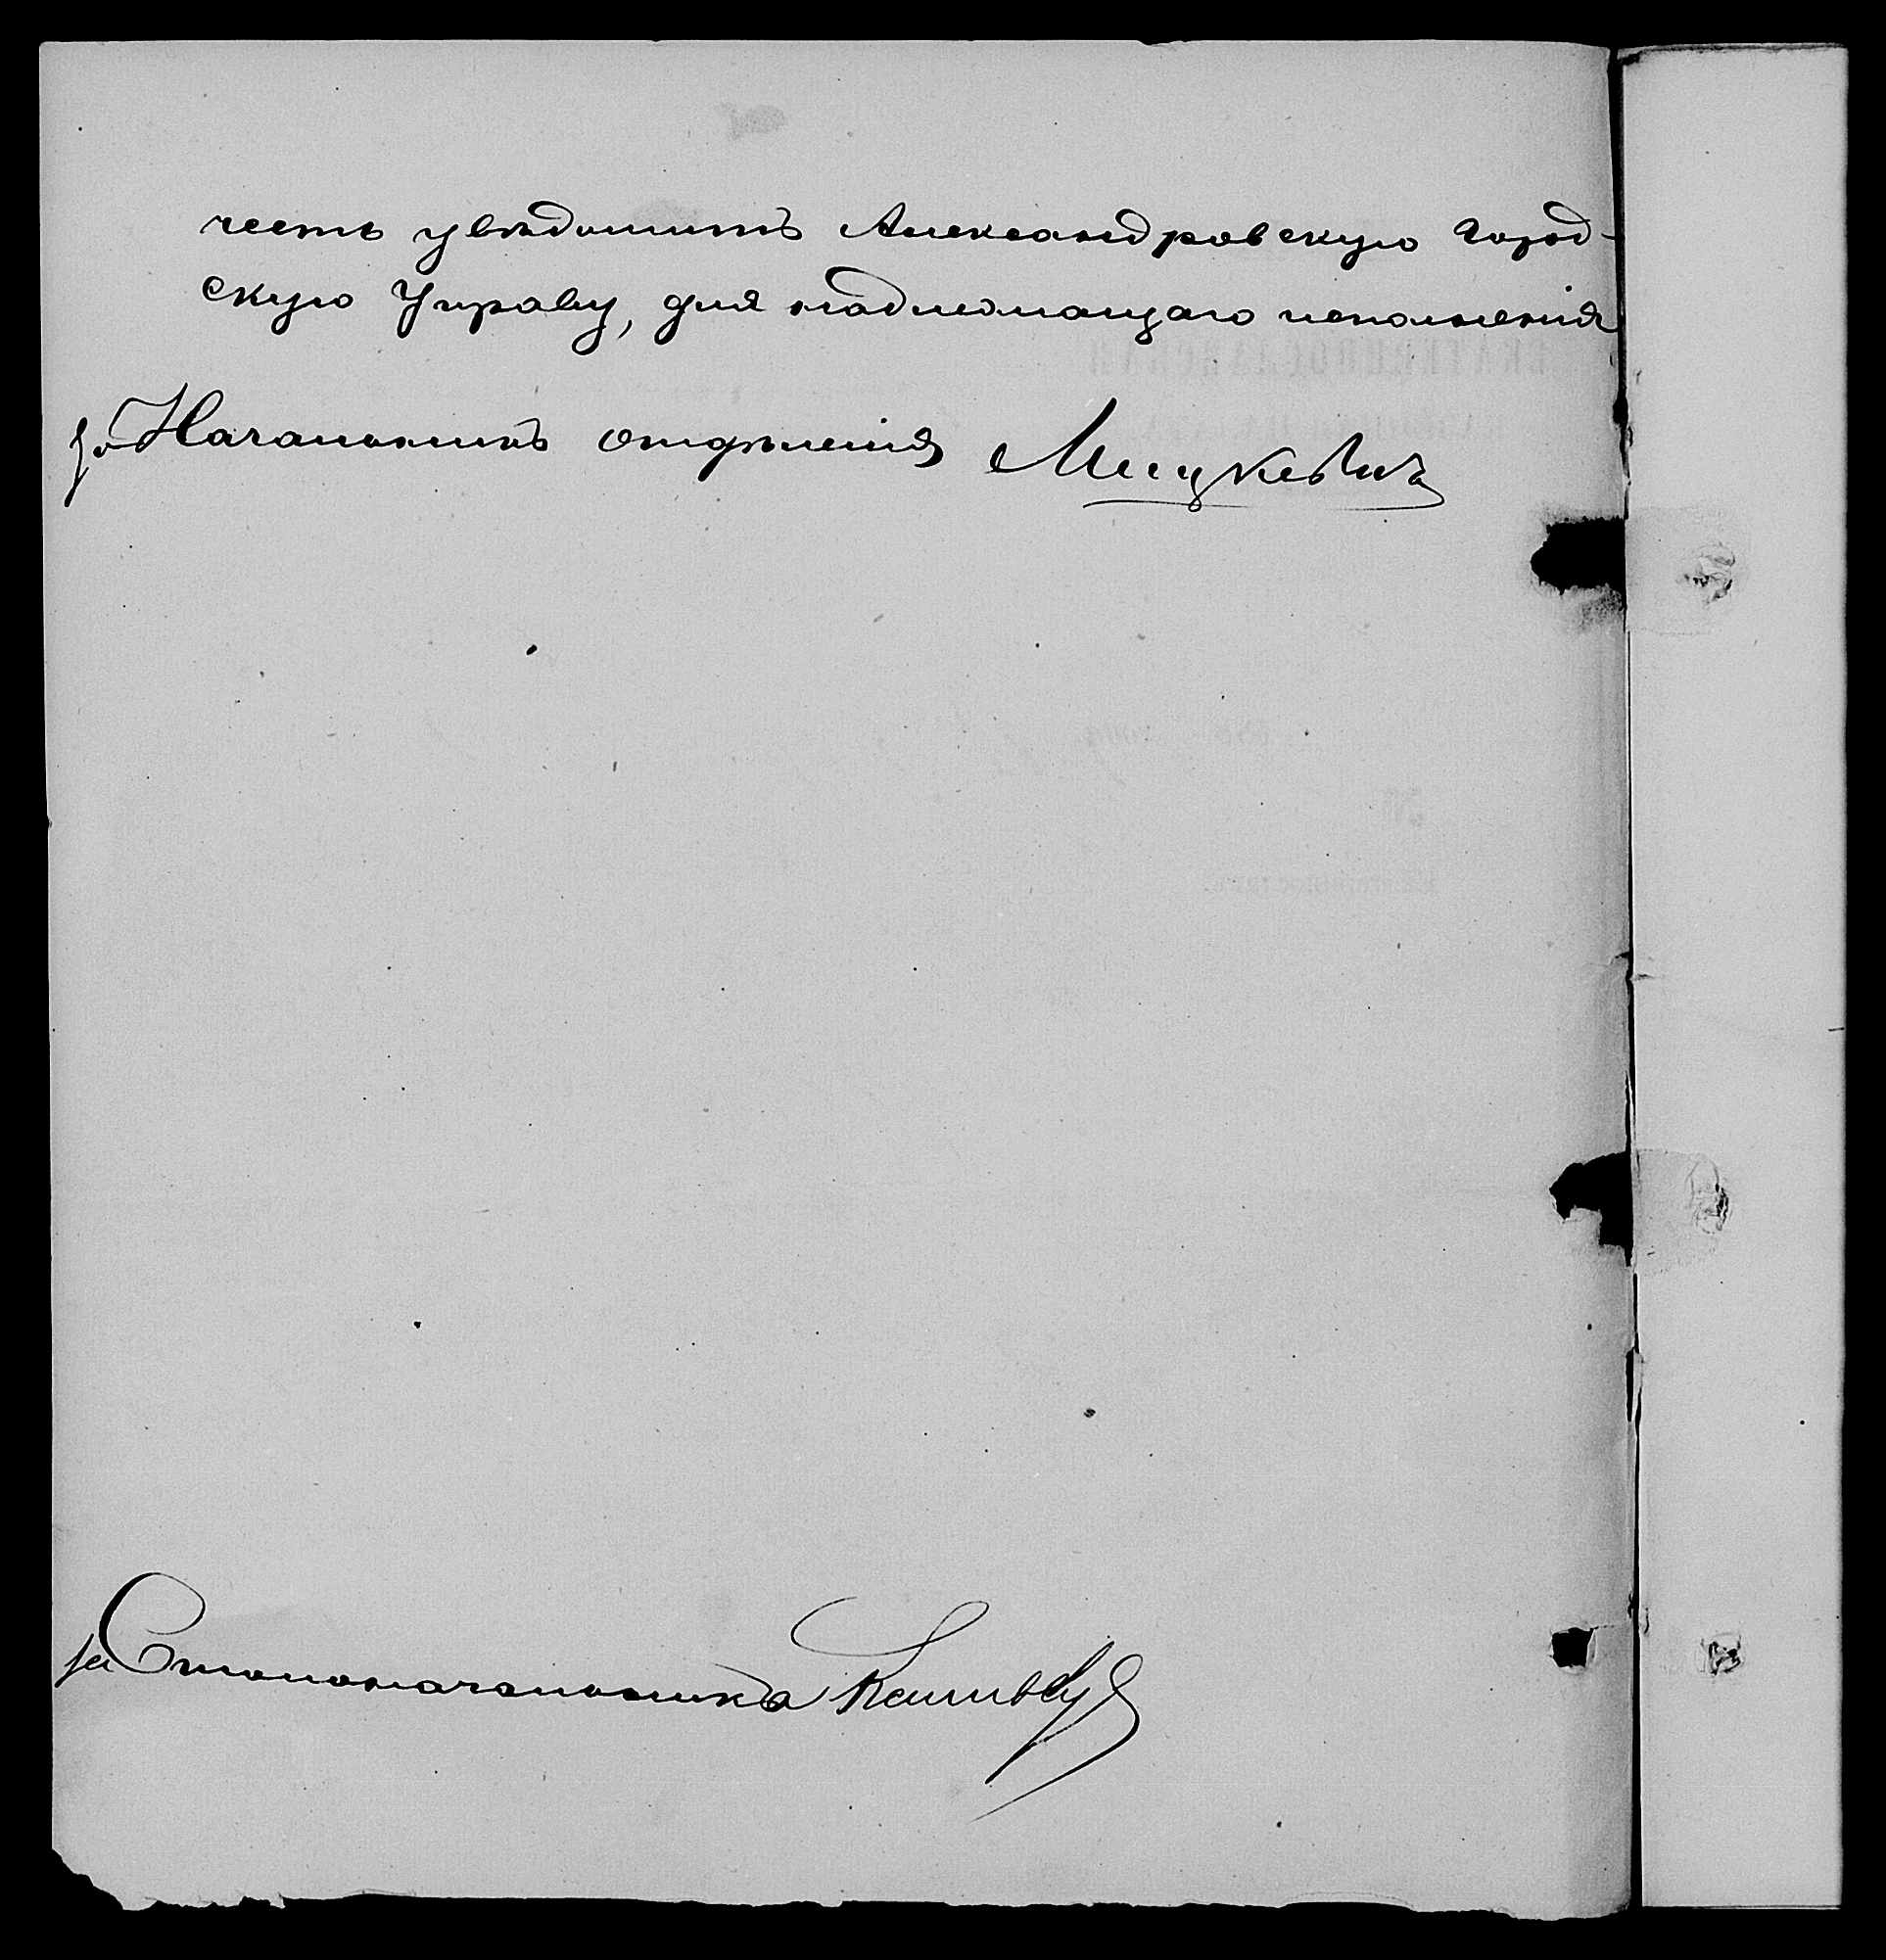 честь увѣдомить Александровскую Город-
скую Управу, для надлежащаго исполненія
За Начальникъ отдѣленія Мицкевичъ
за Столоначальника